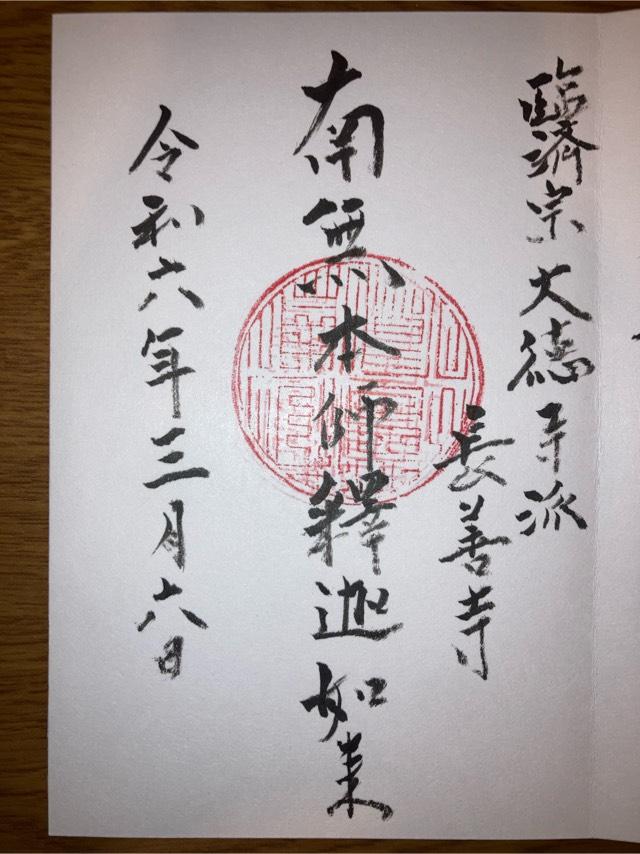 臨済宗大徳寺派
長善寺
南無本師釋迦如来
令和六年三月六日